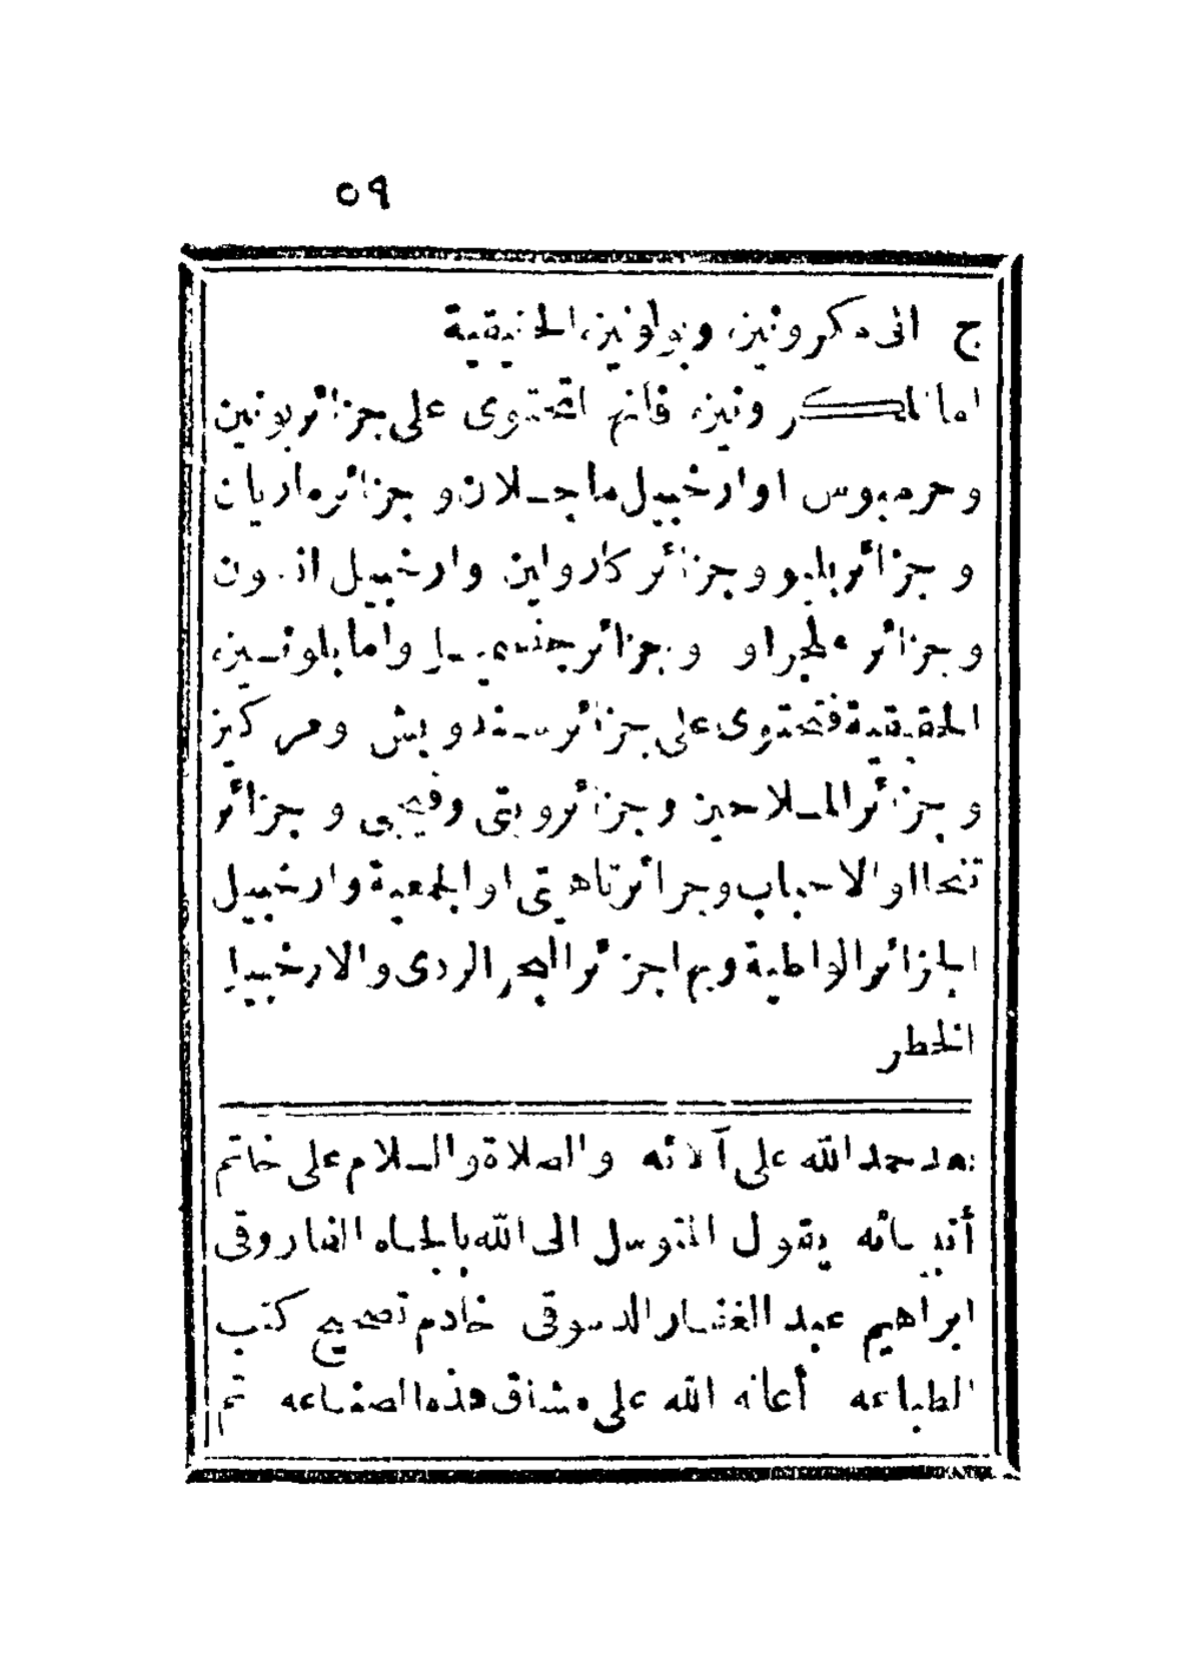 ٥٩
ج الى مكرونيزه وبولونيزه الحقيقية
اما المكرونيزه فانها تحتوى على جزائر بونين
و جزائر ماريان
وجزائر بليو وجزائر كارولين وارخبيل
وجزائر وجزائر واما بلونيزه
الحقيقية فتحتوى على جزائر سندويش ومركيز
وجزائر الملاحين وجزائر ويتى وفيجى وجزائر
تنجا او الاحباب وجزائر تاهيتى او الجمعية وارخبيل
الجزائر الواطية وبها جزائر البحر الردى والارخبيل
الخطر
بعد حمد الله على آلائه والصلاة والسلام على خاتم
أنبيائه يقول المتوسل الى الله بالجاه الفاروقى
ابراهيم عبد الغفار الدسوقى خادم تصحيح كتب
الطباعه أعانه الله على مشاق هذه الصناعه تم